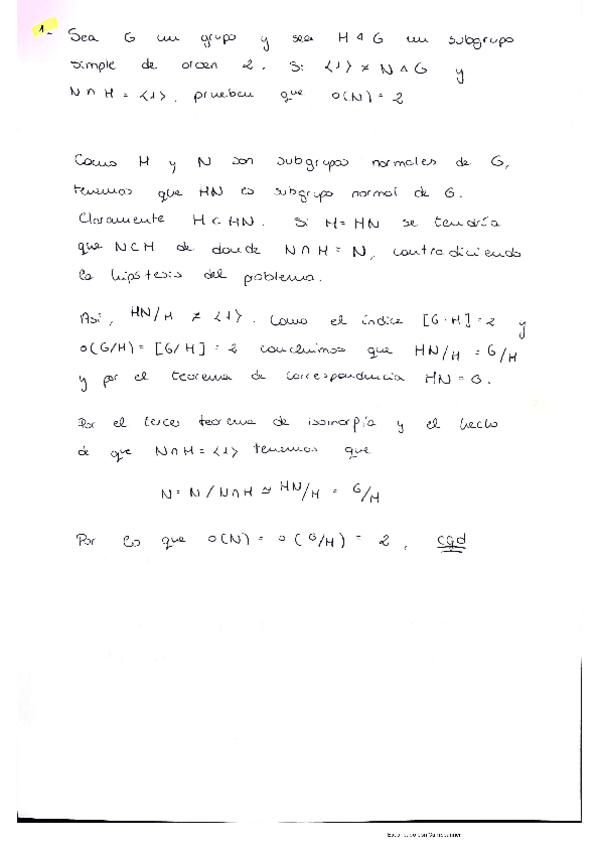 1- Sea G un grupo y sea H ⊲ G un subgrupo
simple de orden 2. Si <1> ≠ N ⊲ G y
N ∩ H = <1>, prueben que o(N) = 2
Como H y N son subgrupos normales de G,
tenemos que HN es subgrupo normal de G.
Claramente H ⊂ HN. Si H = HN se tendría
que N ⊂ H de donde N ∩ H = N, contradiciendo
la hipótesis del problema.
Así, HN/H ≠ <1>. Como el índice [G:H] = 2 y
o(G/H) = [G/H] = 2 concluimos que HN/H = G/H
y por el teorema de correspondencia HN = G.
Por el tercer teorema de isomorfía y el hecho
de que N ∩ H = <1> tenemos que
N = N/N∩H ≃ HN/H = G/H
Por lo que o(N) = o(G/H) = 2, cqd